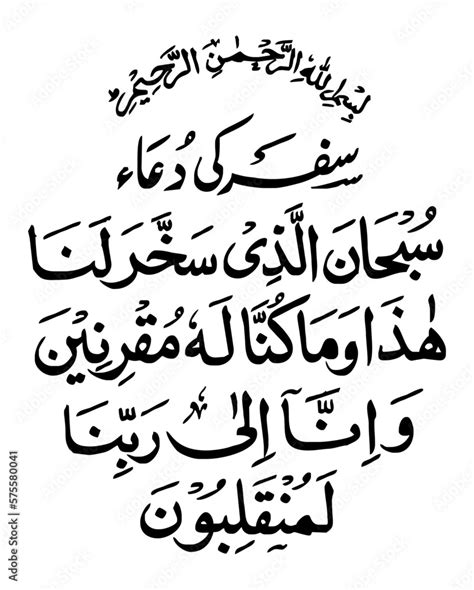 بِسْمِ اللهِ الرَّحْمٰنِ الرَّحِيْمِ
سفر کی دُعَاء
سُبْحَانَ الَّذِىْ سَخَّرَ لَنَا
هٰذَا وَمَا كُنَّا لَهٗ مُقْرِنِيْنَ
وَاِنَّآ اِلٰى رَبِّنَا
لَمُنْقَلِبُوْنَ
Adobe Stock | #575580041